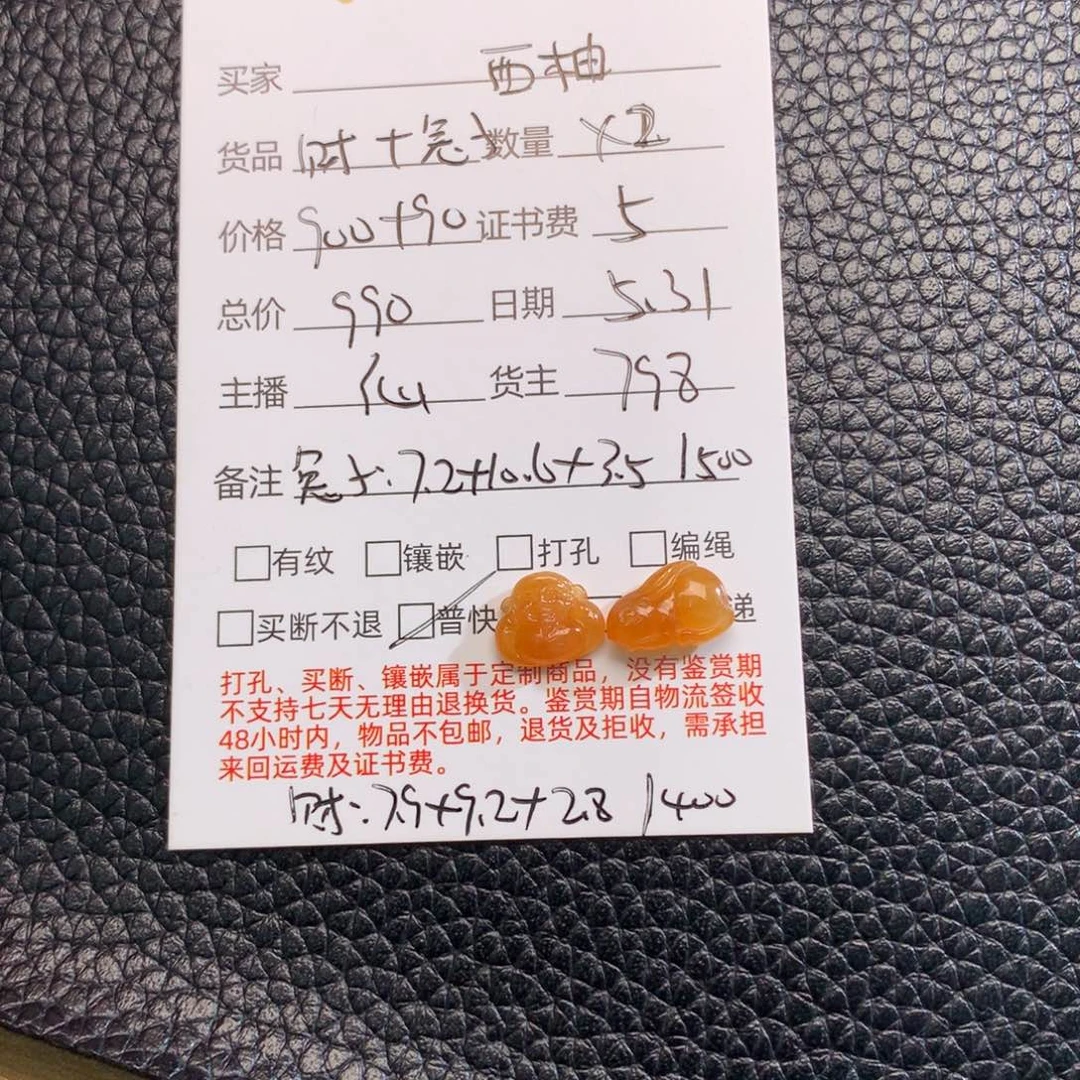 买家 西柚
货品 财十冠子 数量 X2
价格 900+90 证书费 5
总价 990 日期 5.31
主播 仙 货主 798
备注 冠子:7.2+10.6+3.5 1500
□有纹 □镶嵌 □打孔 □编绳
□买断不退 □普快 递
打孔、买断、镶嵌属于定制商品，没有鉴赏期
不支持七天无理由退换货。鉴赏期自物流签收
48小时内，物品不包邮，退货及拒收，需承担
来回运费及证书费。
财:7.9+9.2+2.8 1400